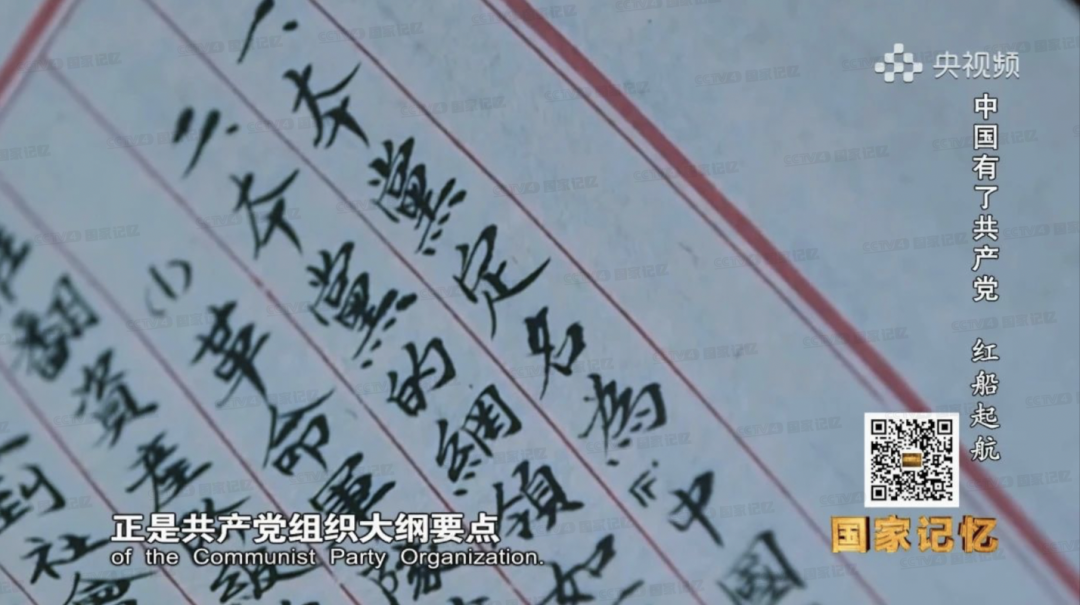 央视频
中国有了共产党 红船起航
一、本黨定名為『中國
二、本黨的綱領如
(1)革命軍隊
翻資產階級
到社會
国家记忆
正是共产党组织大纲要点
of the Communist Party Organization.